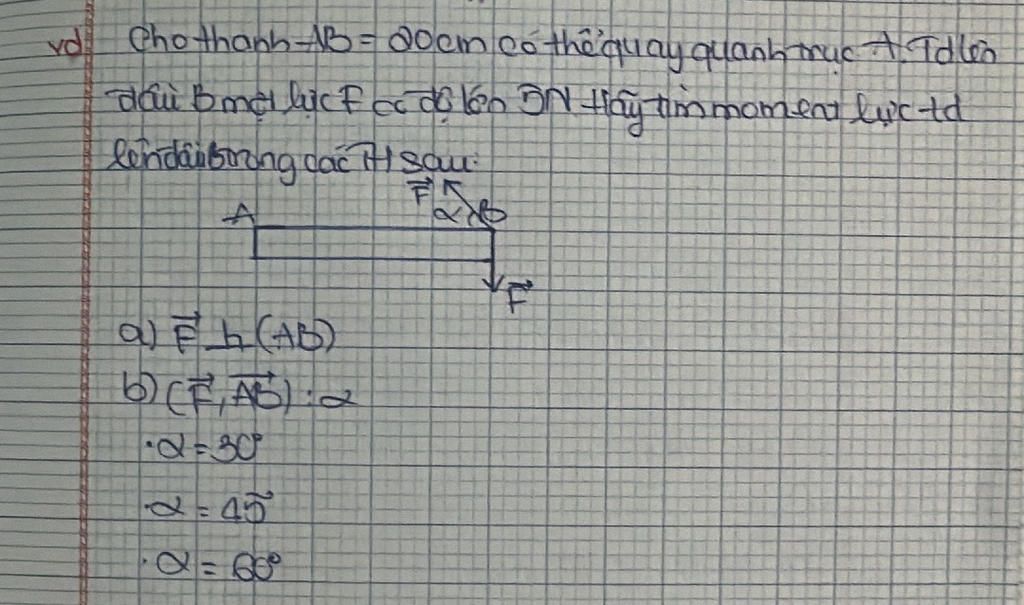 vd Cho thanh AB = 20cm có thể quay quanh trục A. Td lên
đầu B một lực F có độ lớn 5N Hãy tìm moment lực td
lên đầu B trong các TH sau:
F⃗
A α B
F⃗
a) F⃗ ⊥ (AB)
b) (F⃗, AB⃗) : α
·α = 30°
·α = 45°
·α = 60°